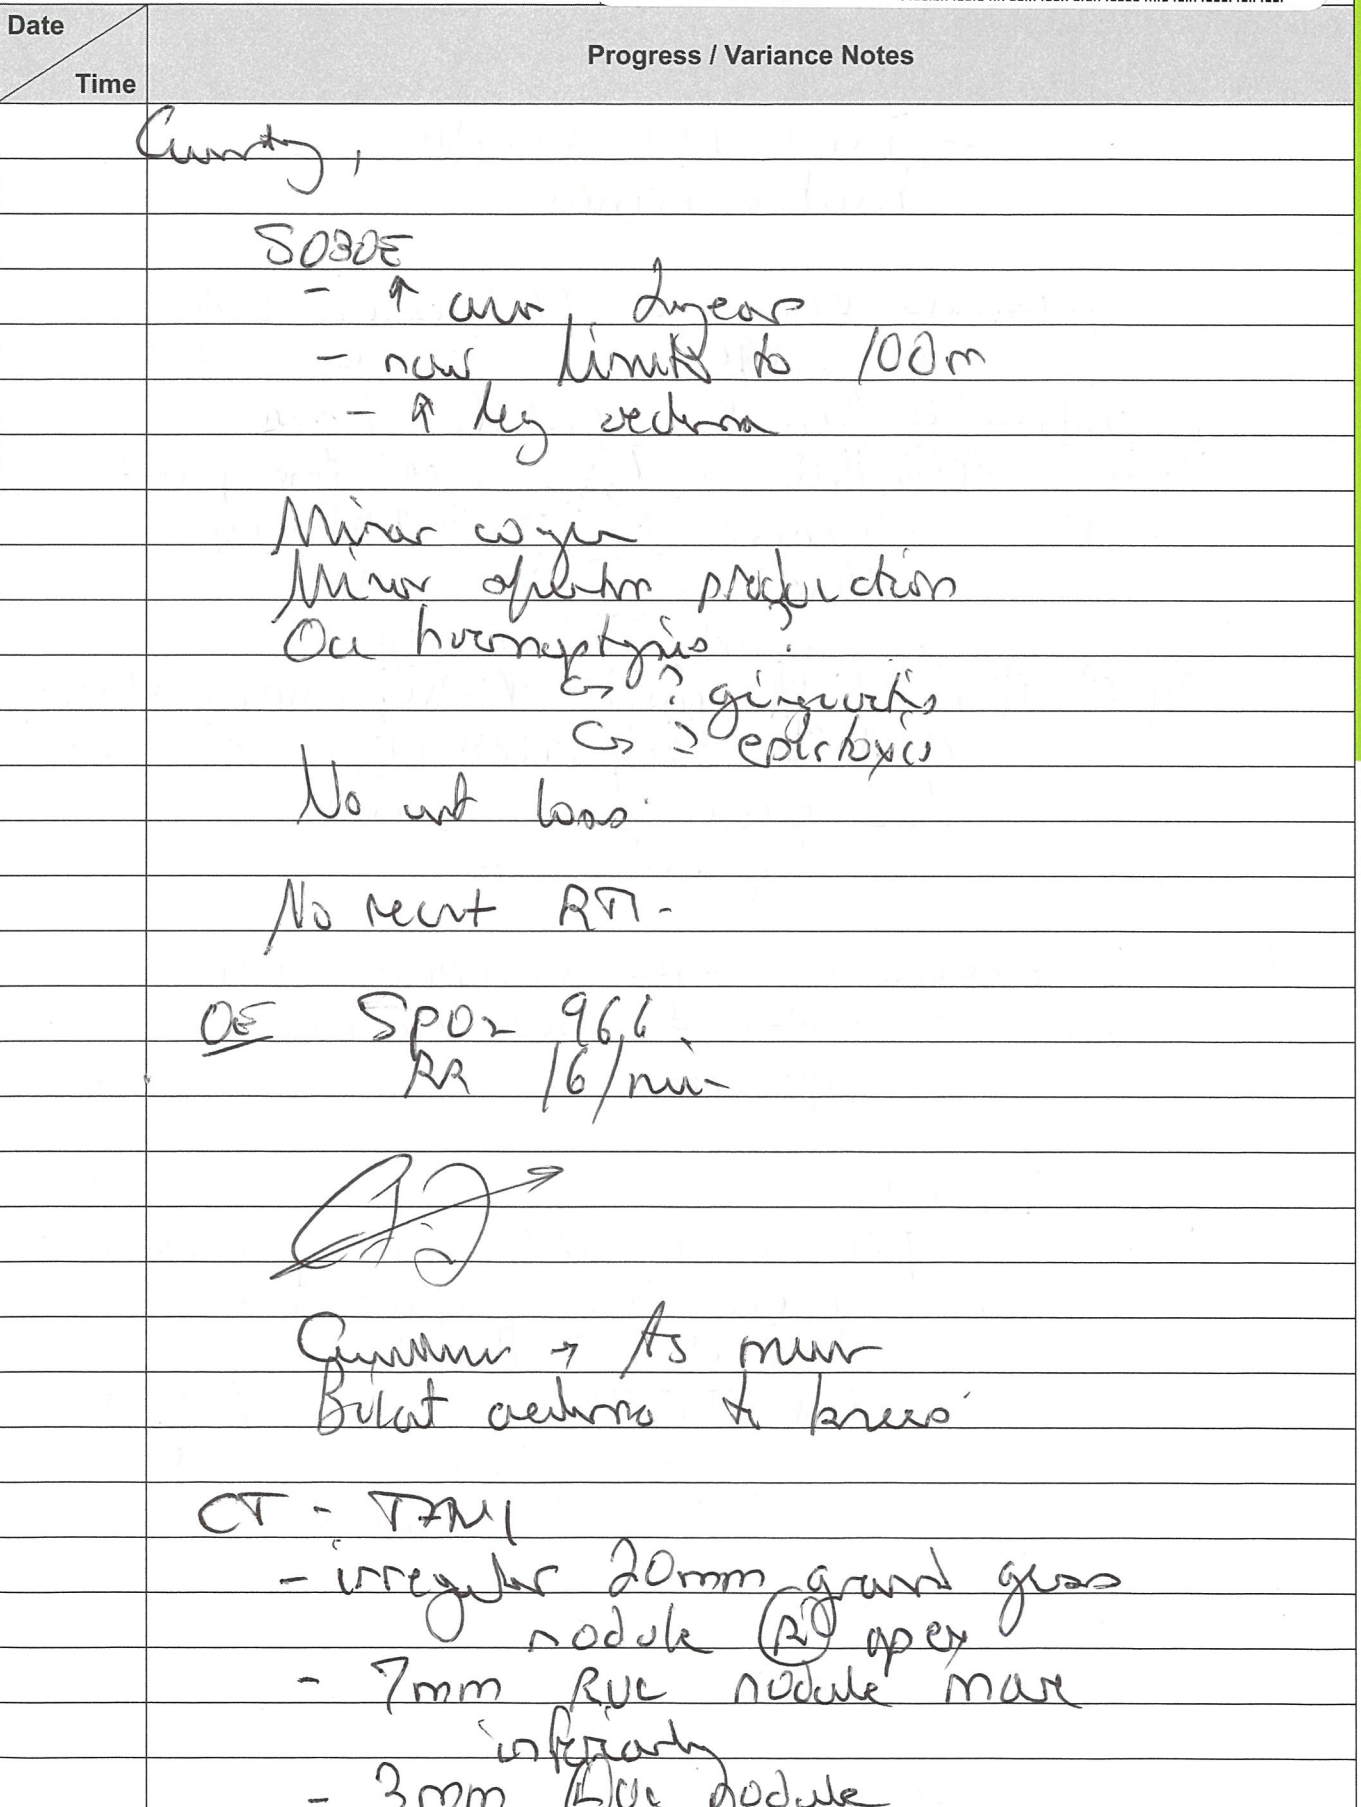 Date
Time
Progress / Variance Notes
Currently,
SOBOE
- ↑ over 2 years
- now limits to 100m
- ↑ leg oedema
Minor cough
Minor sputum production
Occ haemoptysis ?
↳ ? gingivitis
↳ ? epistaxis
No wt loss.
No recent RTI.
OE SPO2 96%
RR 16/min
→ As
Bilat oedema to knees
CT -
- irregular 20mm ground glass
nodule (R) apex
- 7mm RUL nodule more
inferiorly
- 3mm RUL nodule